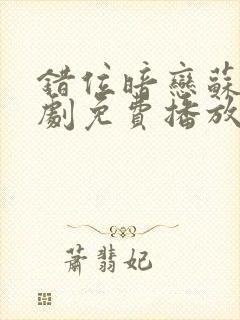 錯位暗戀蘇
劇免費播放
蕭翡妃